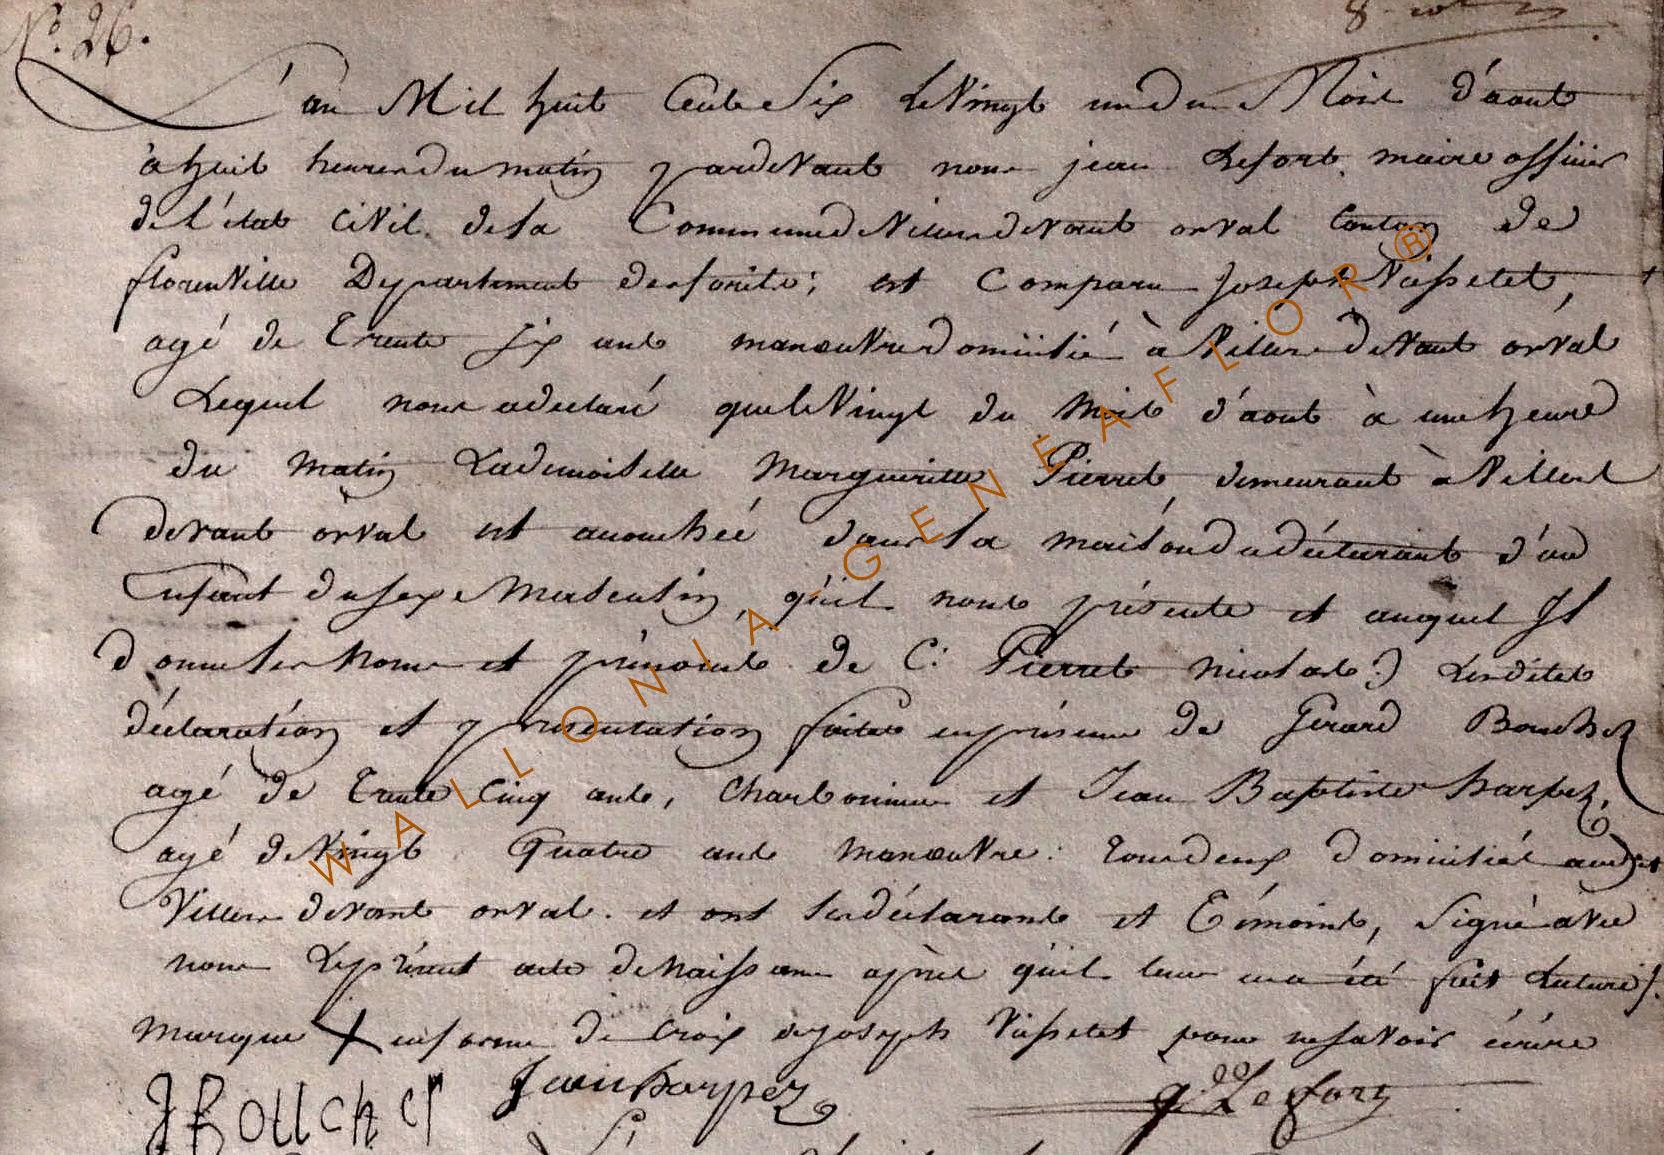 N°. 26.
L'an Mil huit Cent Six le Vingt un du Mois d'aout
à huit heures du matin pardevant nous jean Lefort, maire officier
de l'état civil de la Commune de Villers devant orval Canton de
florenville Département des forêts; est Comparu Joseph Naisselet,
agé de Trente six ans manœuvre domicilié à Villers devant orval
Lequel nous a déclaré que le Vingt du Mois d'aout à une heure
du matin La demoiselle Margueritte Pierret demeurant à Villers
devant orval est accouchée dans la maison du déclarant d'un
Enfant du sexe Masculin, qu'il nous présente et auquel Il
donne les noms et prénoms de C: Pierret nicolas:) Lesdites
déclaration et présentation faites en présence de Gerard Bouchez
agé de Trente Cinq ans, Charbonnier et Jean Baptiste harpez,
agé de Vingt Quatre ans manœuvre: tous deux domiciliés audit
Villers devant orval. et ont les déclarants et Témoins, signé avec
nous Le présent acte de naissance après qu'il leur en a été fait Lecture.
Marque + en forme de Croix de joseph Naisselet pour ne savoir écrire
J Bouchez Jean harpez j. Lefort
WALLONIA-GENEAFLOR®